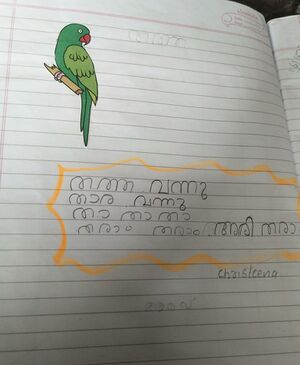 തത്ത വന്നു
താര വന്നു
താ താ താ
തരാം തരാം അരി തരാം
Christeena